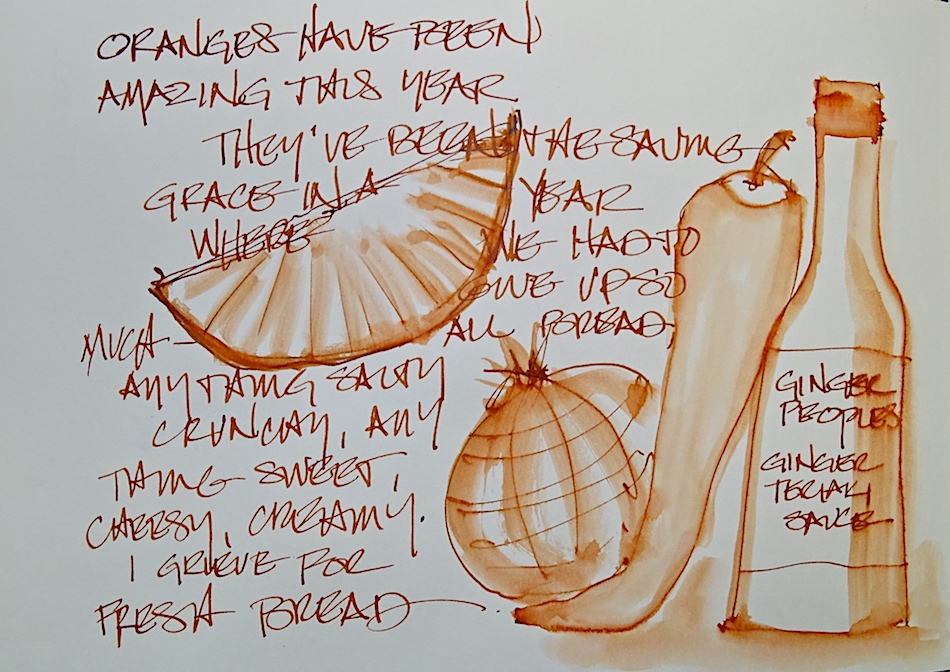 ORANGES HAVE BEEN
AMAZING THIS YEAR
THEY'VE BEEN THE SAVING
GRACE IN A YEAR
WHERE WE HAD TO
GIVE UP SO
MUCH - ALL BREAD,
ANYTHING SALTY
CRUNCHY, ANY
THING SWEET,
CHEESY, CREAMY.
I GRIEVE FOR
FRESH BREAD
GINGER
PEOPLES
GINGER
TERIAKI
SAUCE